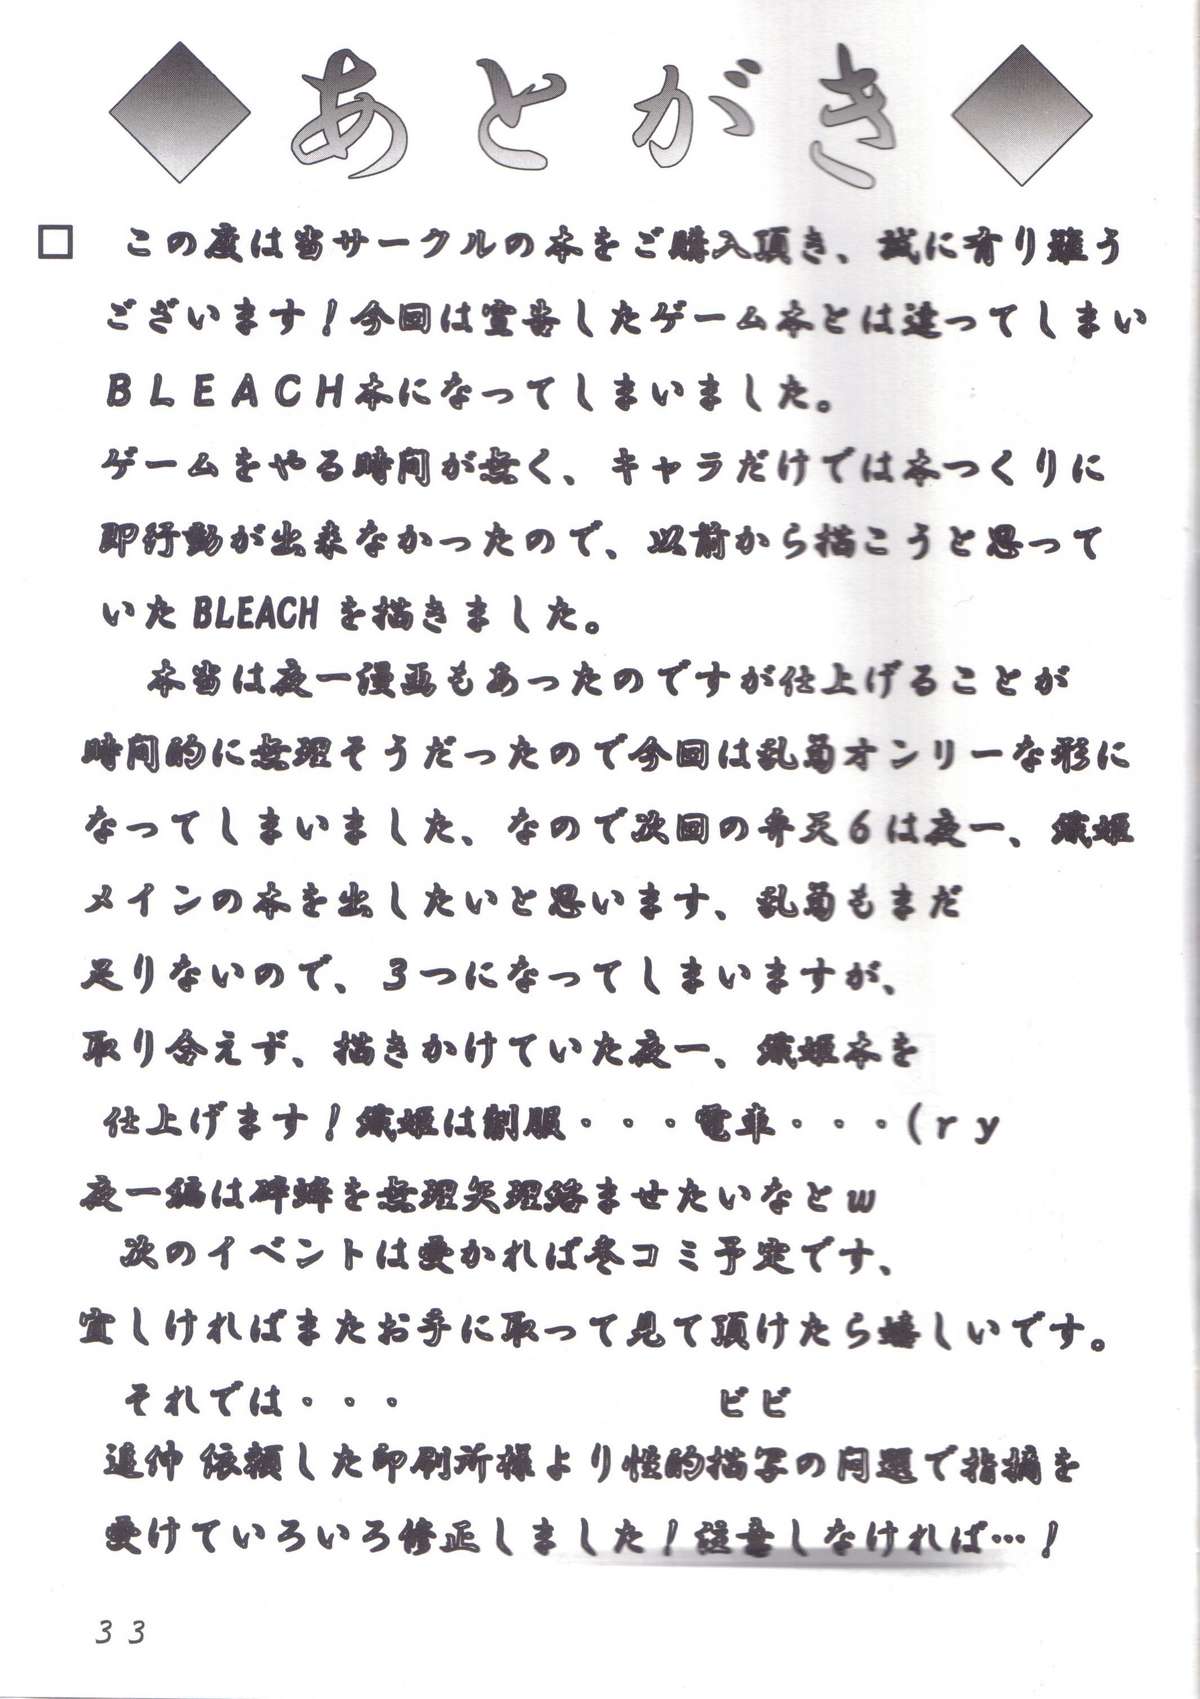 あとがき
□ この度は当サークルの本をご購入頂き、誠に有り難う
ございます！今回は宣告したゲーム本とは違ってしまい
ＢＬＥＡＣＨ本になってしまいました。
ゲームをやる時間が無く、キャラだけでは本つくりに
即行動が出来なかったので、以前から描こうと思って
いたBLEACHを描きました。
本当は夜一漫画もあったのですが仕上げることが
時間的に無理そうだったので今回は乱菊オンリーな形に
なってしまいました、なので次回の弁天６は夜一、織姫
メインの本を出したいと思います、乱菊もまだ
足りないので、３つになってしまいますが、
取り合えず、描きかけていた夜一、織姫本を
仕上げます！織姫は制服・・・電車・・・(ｒｙ
夜一編は砕蜂を無理矢理絡ませたいなとｗ
次のイベントは受かれば冬コミ予定です、
宜しければまたお手に取って見て頂けたら嬉しいです。
それでは・・・ ビビ
追伸 依頼した印刷所様より性的描写の問題で指摘を
受けていろいろ修正しました！注意しなければ…！
３３